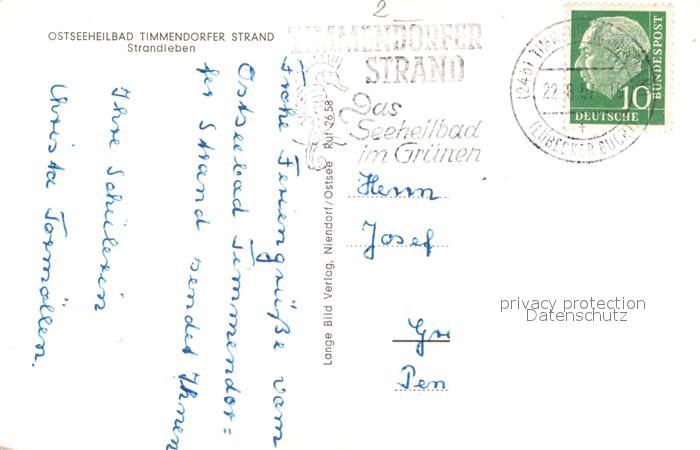 OSTSEEHEILBAD TIMMENDORFER STRAND
Strandleben
2
TIMMENDORFER
STRAND
Das
Seeheilbad
im Grünen
(24b) TIMMENDORFER
22.8.57
(LÜBECKER BUCHT)
10
DEUTSCHE
BUNDESPOST
Frohe Feriengrüße vom
Ostseebad Timmendor=
fer Strand sendet Ihnen
Ihre Schülerin
Christa
Lange Bild Verlag, Niendorf/Ostsee Ruf 2658
Herrn
Josef
Gre
Pen
privacy protection
Datenschutz